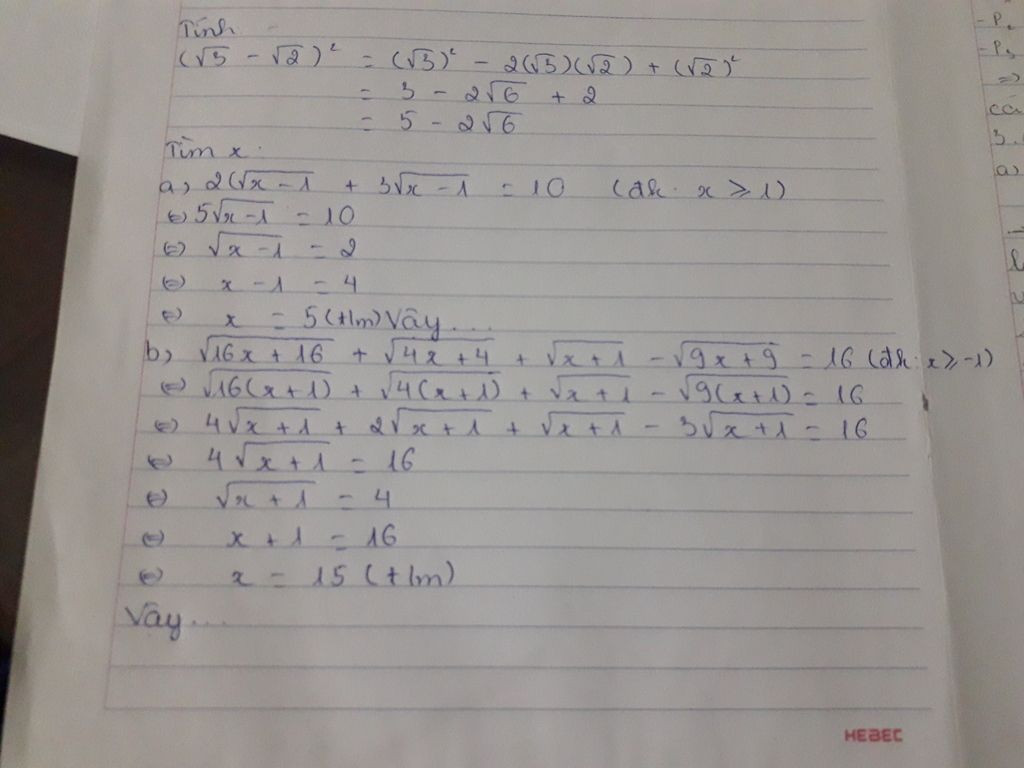 Tính
(√3 - √2)² = (√3)² - 2(√3)(√2) + (√2)²
= 3 - 2√6 + 2
= 5 - 2√6
Tìm x:
a, 2(√x-1 + 3√x-1 = 10 (đk: x ⩾ 1)
⇔ 5√x-1 = 10
⇔ √x-1 = 2
⇔ x - 1 = 4
⇔ x = 5 (tlm) Vậy...
b, √16x+16 + √4x+4 + √x+1 - √9x+9 = 16 (đk: x ⩾ -1)
⇔ √16(x+1) + √4(x+1) + √x+1 - √9(x+1) = 16
⇔ 4√x+1 + 2√x+1 + √x+1 - 3√x+1 = 16
⇔ 4√x+1 = 16
⇔ √x+1 = 4
⇔ x + 1 = 16
⇔ x = 15 (tlm)
Vậy...
HEBEC
- P₂
- P₃
⇒
cá
3.
a,